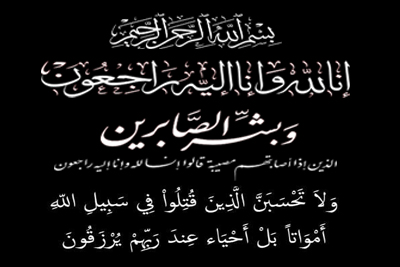 بسم الله الرحمن الرحيم
إنا لله وإنا إليه راجعون
وبشر الصابرين
الذين إذا أصابتهم مصيبة قالوا إنا لله وإنا إليه راجعون
وَلاَ تَحْسَبَنَّ الَّذِينَ قُتِلُواْ فِي سَبِيلِ اللّهِ
أَمْوَاتاً بَلْ أَحْيَاء عِندَ رَبِّهِمْ يُرْزَقُونَ